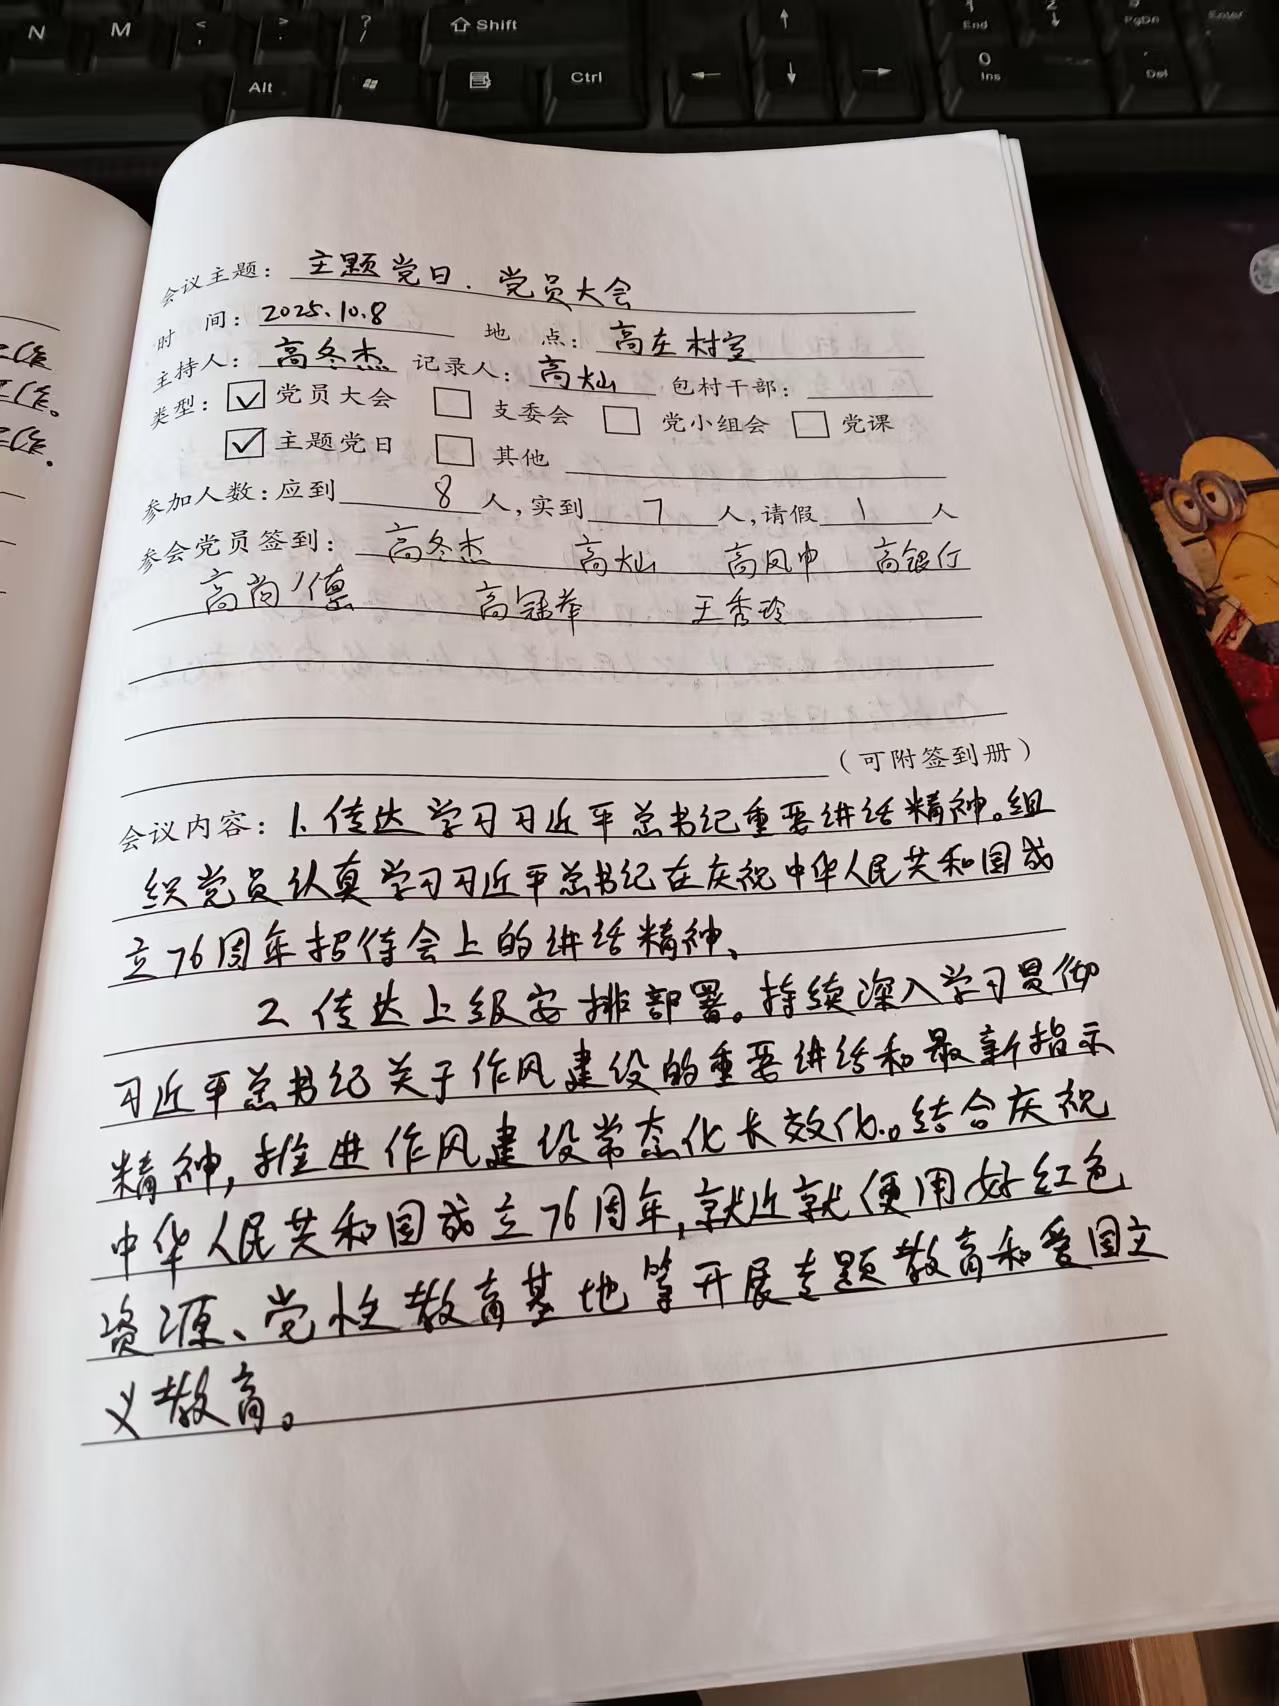 N M < , > . ? / Shift End 1 2 PgDn Enter
Alt Ctrl 0 Ins Del
会议主题：主题党日、党员大会
时 间：2025.10.8 地 点：高庄村室
主持人：高冬杰 记录人：高灿 包村干部：
类型：☑党员大会 □支委会 □党小组会 □党课
☑主题党日 □其他
参加人数：应到 8 人，实到 7 人，请假 1 人
参会党员签到：高冬杰 高灿 高凤中 高银行
高尚德 高冠举 王秀玲
（可附签到册）
会议内容：1.传达学习习近平总书记重要讲话精神。组
织党员认真学习习近平总书记在庆祝中华人民共和国成
立76周年招待会上的讲话精神、
2.传达上级安排部署。持续深入学习贯彻
习近平总书纪关于作风建设的重要讲话和最新指示
精神，推进作风建设常态化长效化。结合庆祝
中华人民共和国成立76周年，就近就便用好红色
资源、党性教育基地等开展专题教育和爱国文
义教育。